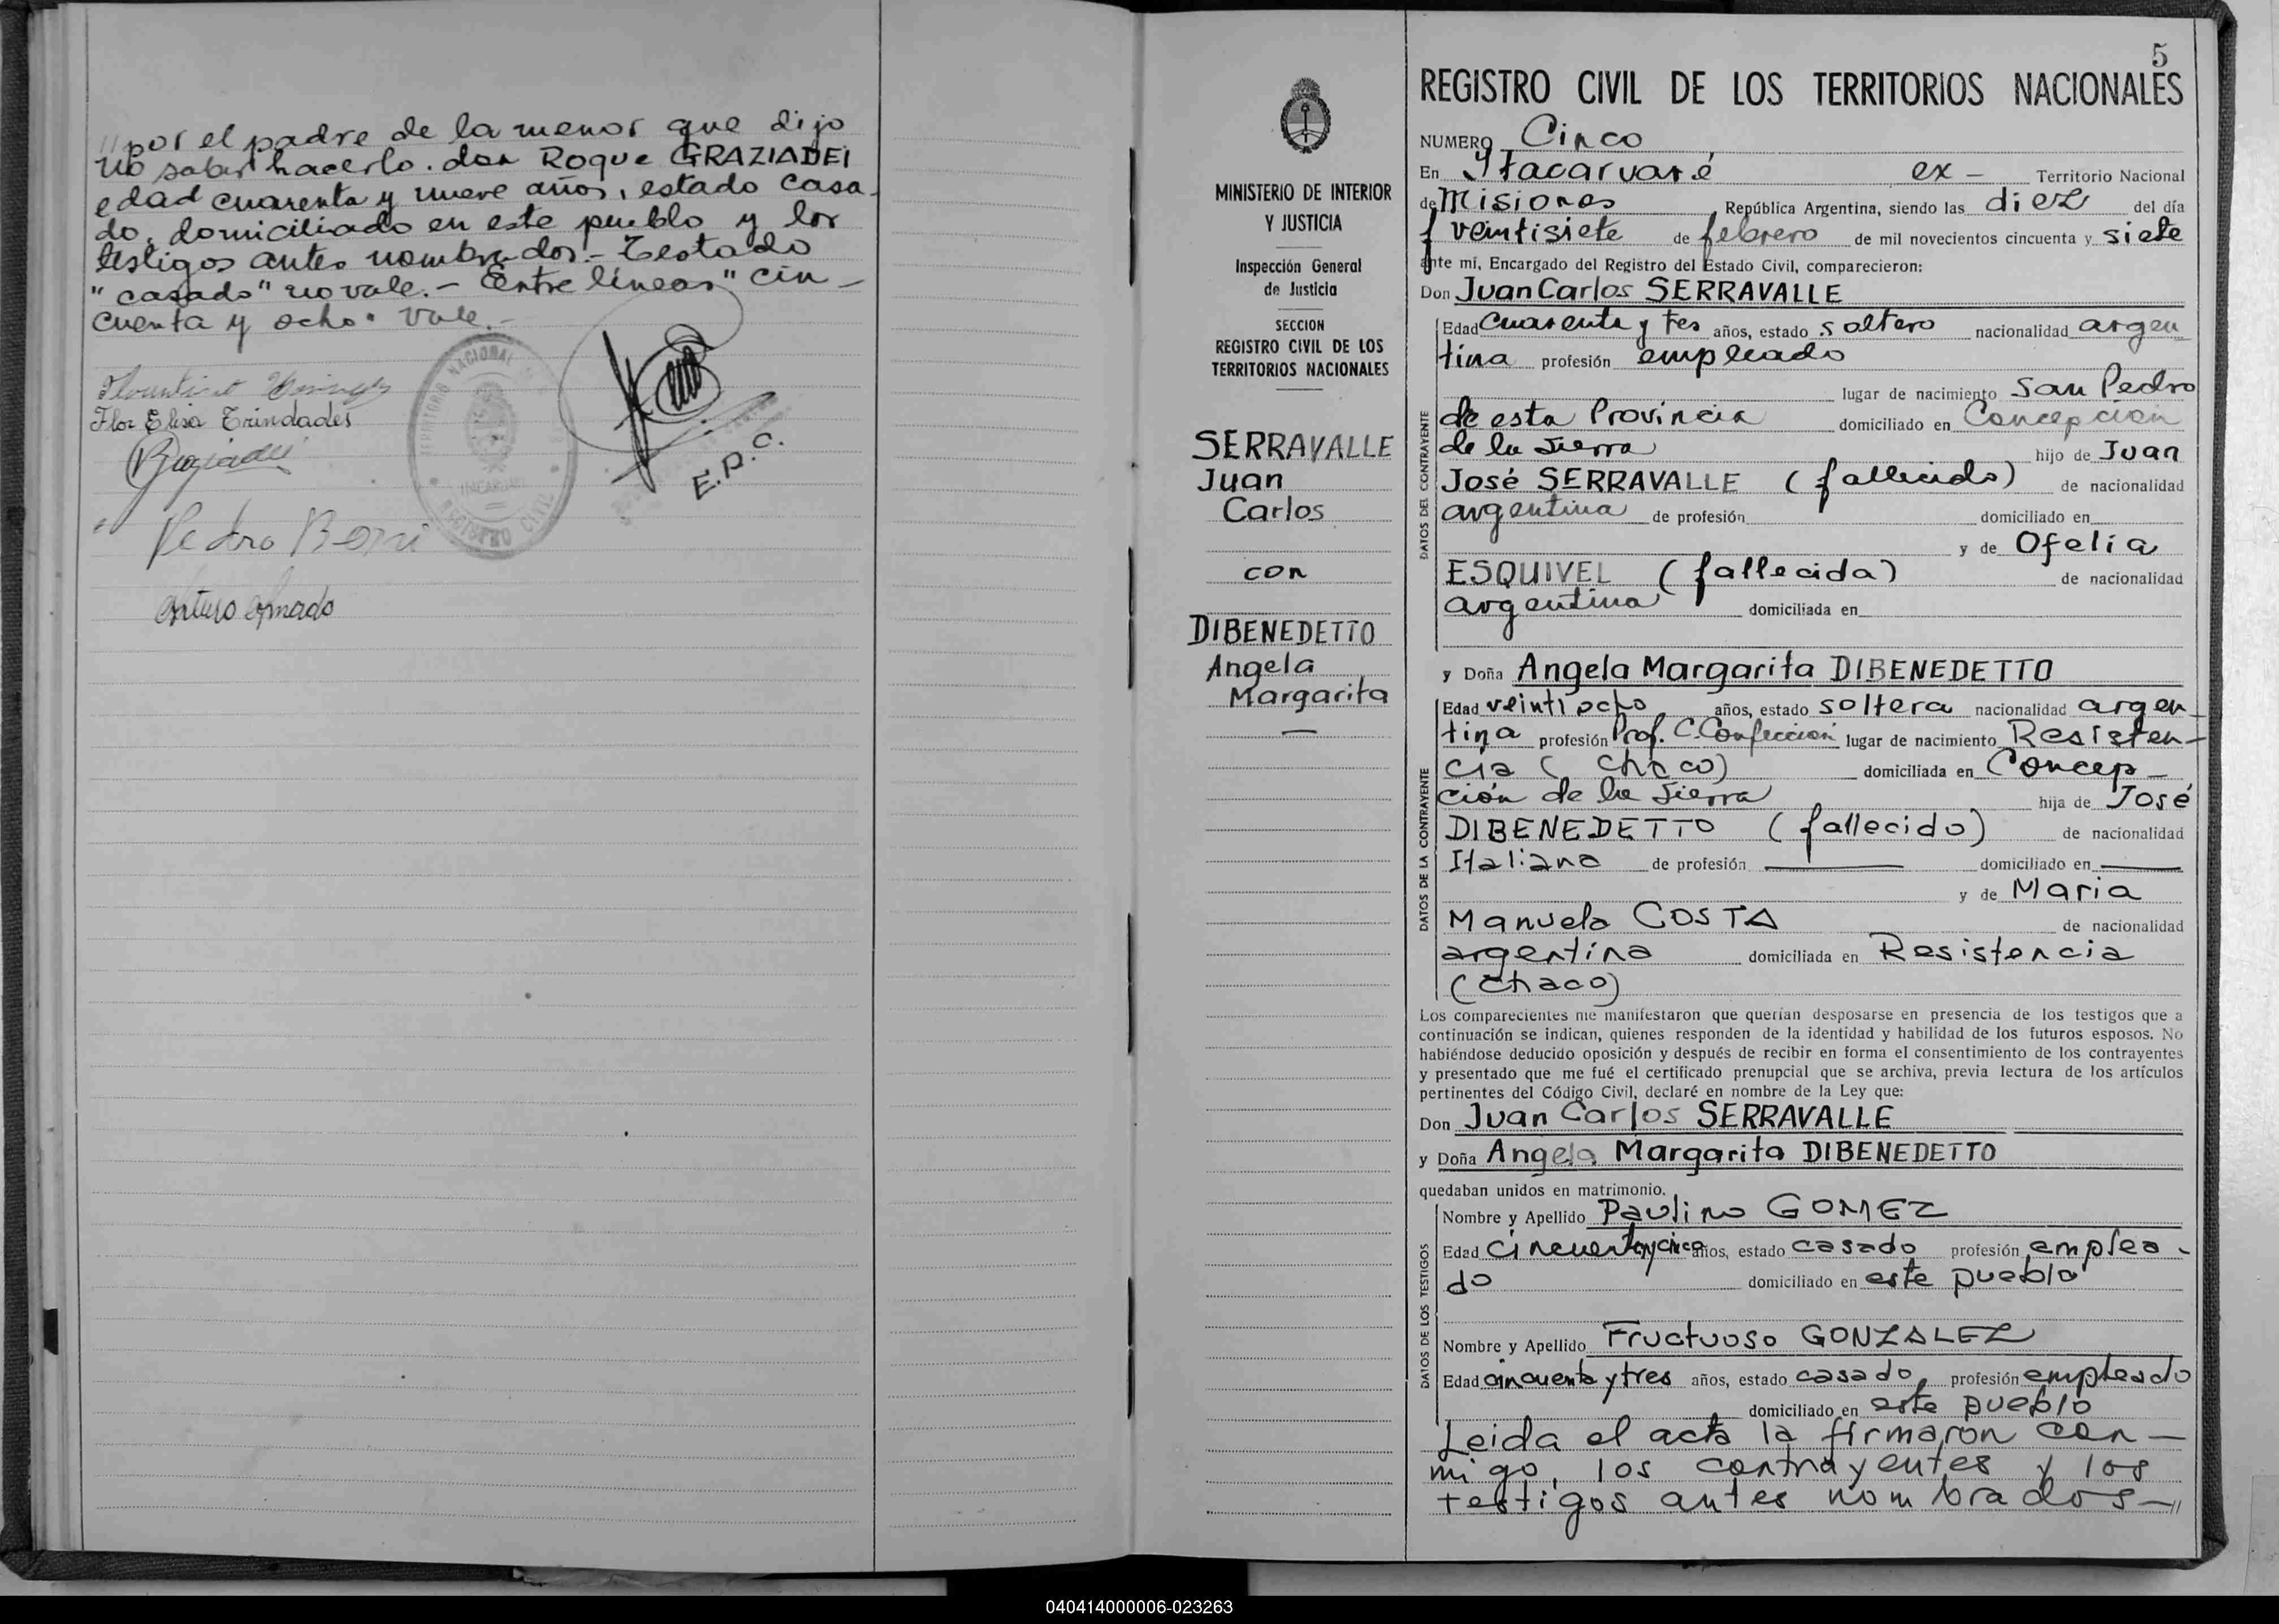 "por el padre de la menor que dijo
no saber hacerlo. don Roque GRAZIADEI
edad cuarenta y nueve años, estado casa-
do, domiciliado en este pueblo y los
testigos antes nombrados.- Testado
"casado" no vale.- Entre lineas "cin-
cuenta y ocho" vale.-
TERRITORIO NACIONAL
REGISTRO CIVIL
Flor Elisa Trindades
E.R.C.
Pedro
Arturo Amado
MINISTERIO DE INTERIOR
Y JUSTICIA
Inspección General
de Justicia
SECCION
REGISTRO CIVIL DE LOS
TERRITORIOS NACIONALES
SERRAVALLE
Juan
Carlos
con
DIBENEDETTO
Angela
Margarita
—
5
REGISTRO CIVIL DE LOS TERRITORIOS NACIONALES
NUMERO Cinco
En Itacaruaré ex - Territorio Nacional
de Misiones República Argentina, siendo las diez del día
veintisiete de febrero de mil novecientos cincuenta y siete
ante mí, Encargado del Registro del Estado Civil, comparecieron:
Don Juan Carlos SERRAVALLE
DATOS DEL CONTRAYENTE
Edad cuarenta y tres años, estado soltero nacionalidad argen
tina profesión empleado
lugar de nacimiento San Pedro
de esta Provincia domiciliado en Concepción
de la Sierra hijo de Juan
José SERRAVALLE (fallecido) de nacionalidad
argentina de profesión domiciliado en
y de Ofelia
ESQUIVEL (fallecida) de nacionalidad
argentina domiciliada en
y Doña Angela Margarita DIBENEDETTO
DATOS DE LA CONTRAYENTE
Edad veintiocho años, estado soltera nacionalidad argen-
tina profesión Prof. C. Confección lugar de nacimiento Resisten-
cia (Chaco) domiciliada en Concep-
ción de la Sierra hija de José
DIBENEDETTO (fallecido) de nacionalidad
Italiana de profesión —— domiciliado en ——
y de Maria
Manuela COSTA de nacionalidad
argentina domiciliada en Resistencia
(Chaco)
Los comparecientes me manifestaron que querían desposarse en presencia de los testigos que a
continuación se indican, quienes responden de la identidad y habilidad de los futuros esposos. No
habiéndose deducido oposición y después de recibir en forma el consentimiento de los contrayentes
y presentado que me fué el certificado prenupcial que se archiva, previa lectura de los artículos
pertinentes del Código Civil, declaré en nombre de la Ley que:
Don Juan Carlos SERRAVALLE
y Doña Angela Margarita DIBENEDETTO
quedaban unidos en matrimonio.
DATOS DE LOS TESTIGOS
Nombre y Apellido Paulino GOMEZ
Edad cincuentaycinco años, estado casado profesión emplea-
do domiciliado en este pueblo
Nombre y Apellido Fructuoso GONZALEZ
Edad cincuenta y tres años, estado casado, profesión empleado
domiciliado en este pueblo
Leida el acta la firmaron con-
migo, los contrayentes y los
testigos antes nombrados—"
040414000006-023263